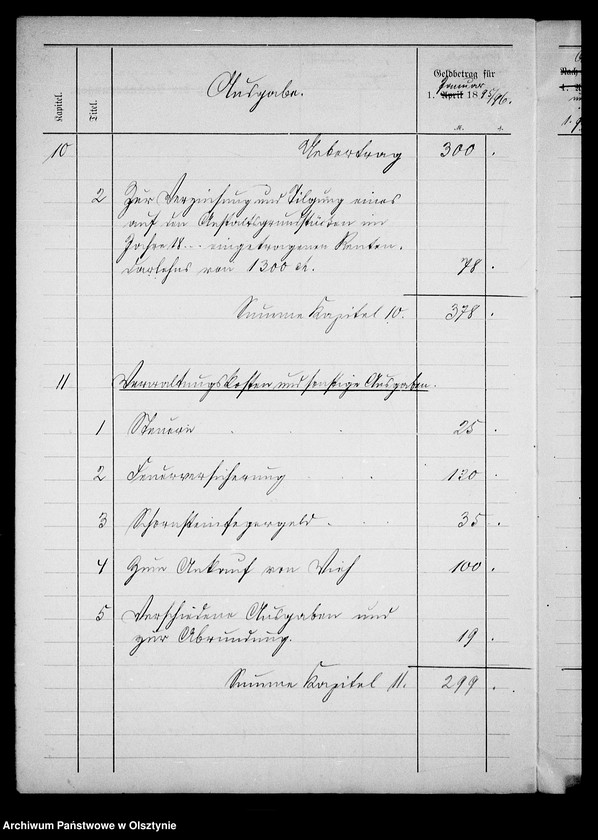 Kapitel.
Titel.
Ausgabe.
Geldbetrag für
Januar
1. April 1895/96.
M.
10 Uebertrag 300 .
2 Zur Verzinsung und Tilgung eines
auf den Anstaltsgrundstücken im
Jahre 18... eingetragenen Renten-
darlehns von 1300 M. 78 .
Summe Kapitel 10. 378 .
11 Verwaltungskosten und sonstige Ausgaben.
1 Steuern . . . 25 .
2 Feuerversicherung . . 120 .
3 Schornsteinfegergeld . . . 35 .
4 Zum Ankauf von Vieh 100 .
5 Verschiedene Ausgaben und
zur Abrundung. 19 .
Summe Kapitel 11. 299 .
Archiwum Państwowe w Olsztynie